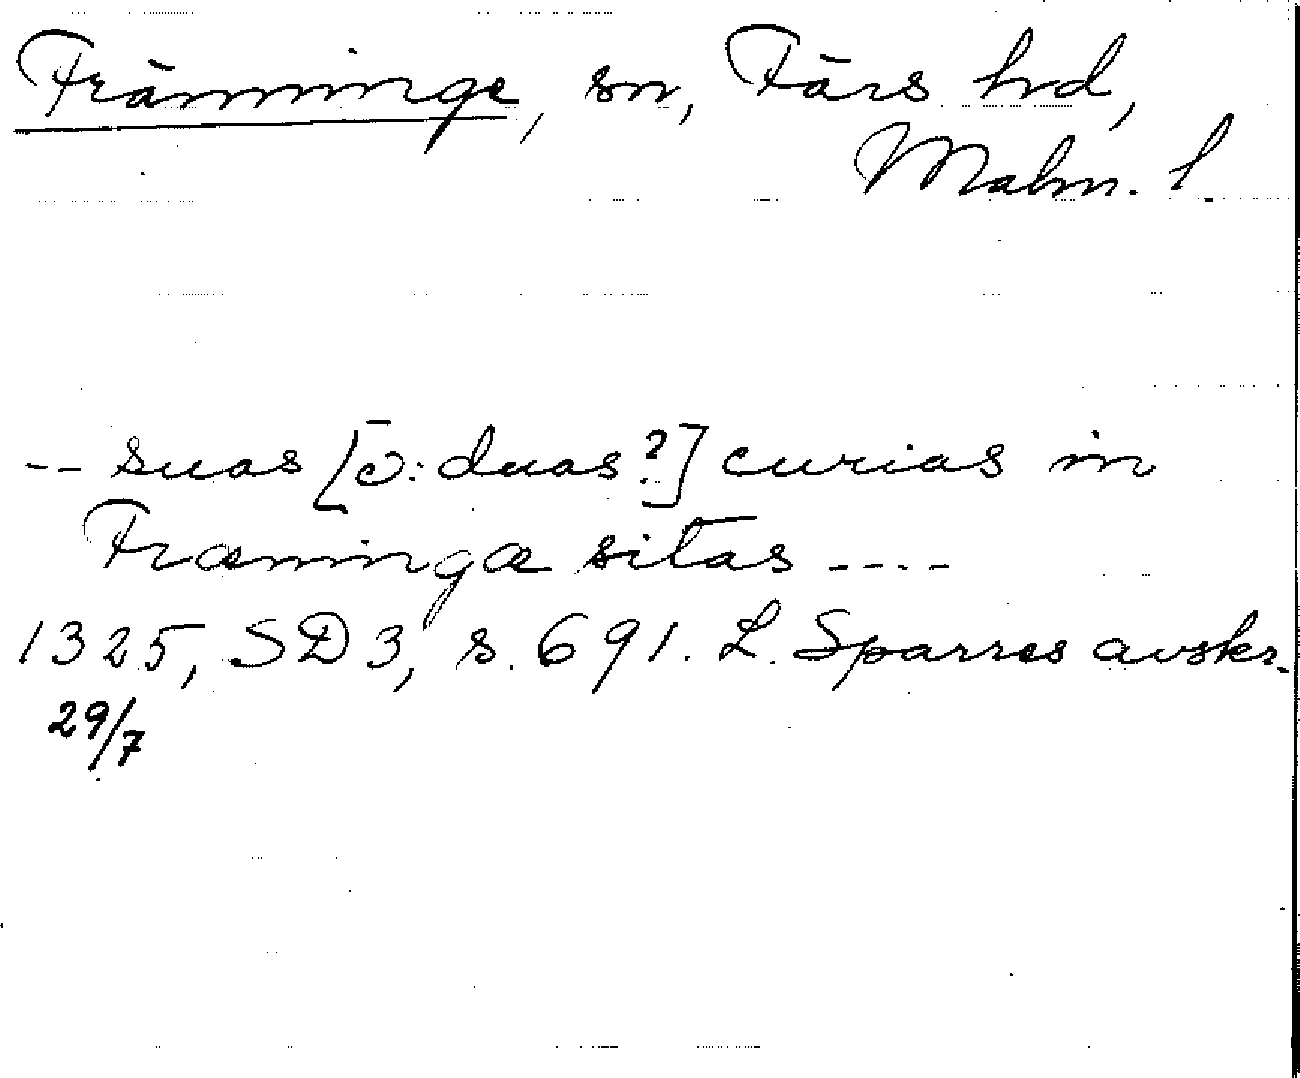 Främninge, sn, Färs hd,
Malm. l.
-- suas [ɔ: duas?] curias in
Fræningæ sitas ----
1325, SD 3, s. 691. L. Sparres avskr.
29/7